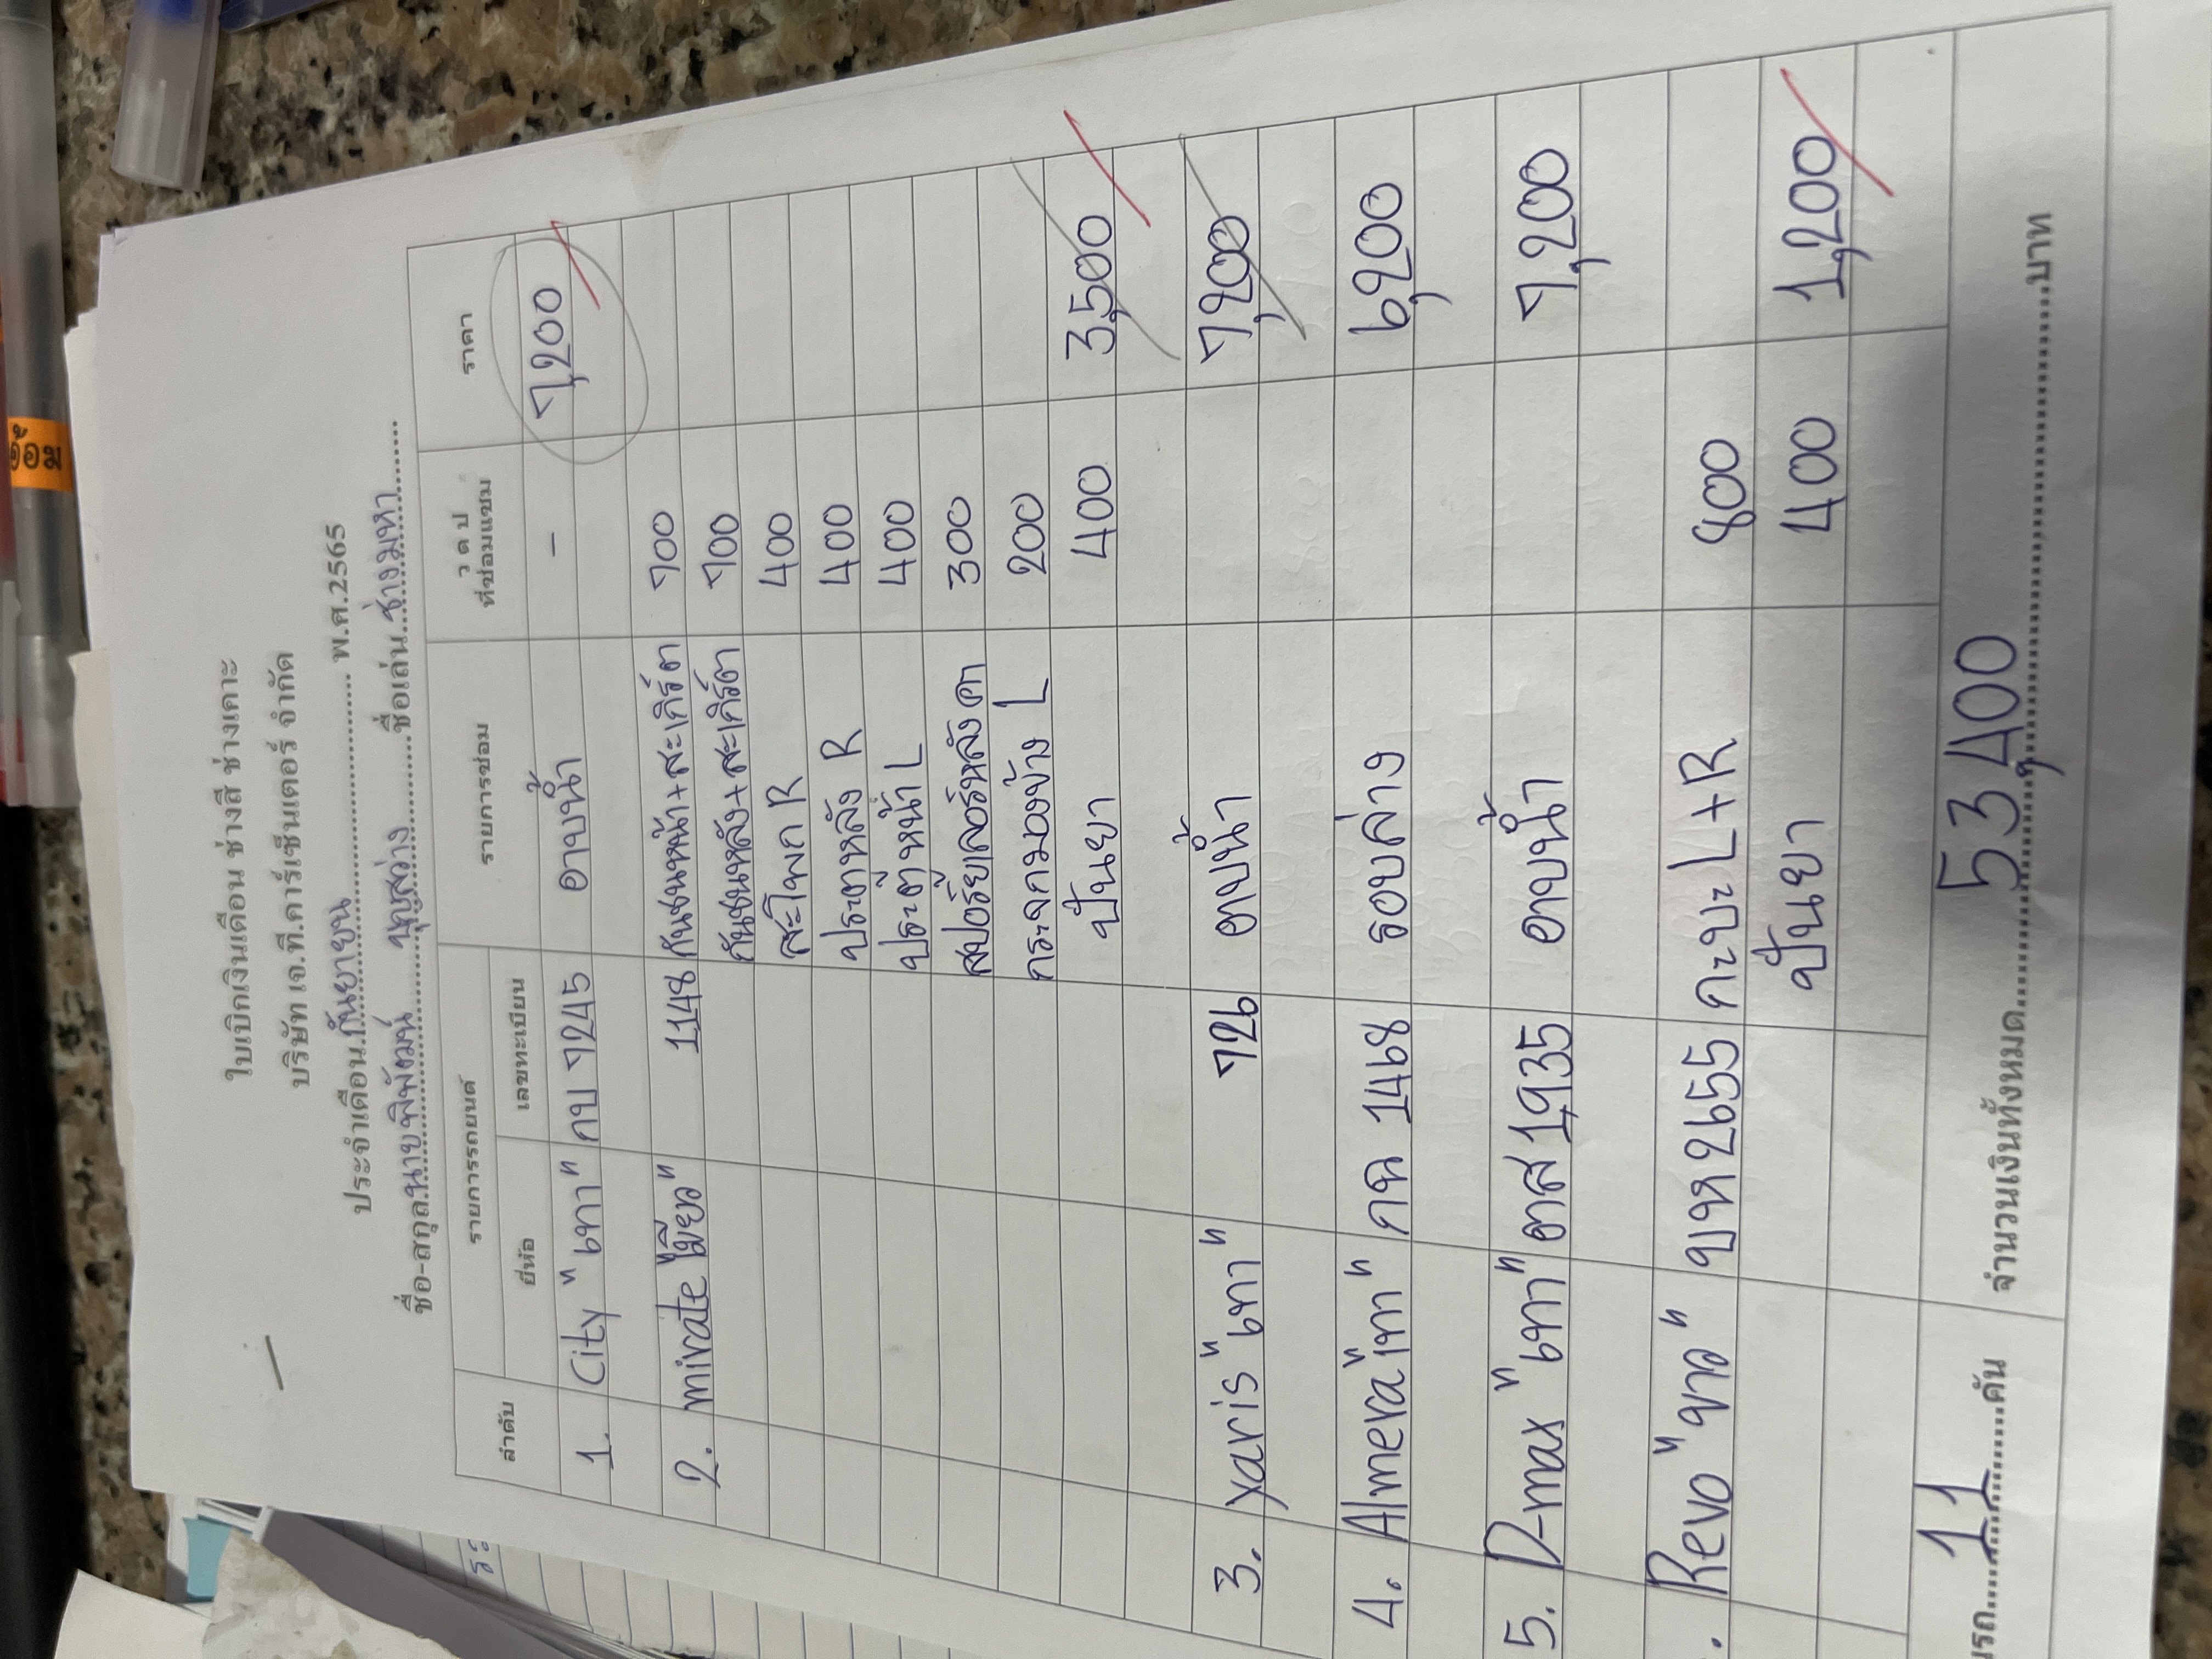 ใบเบิกเงินเดือน ช่างสี ช่างเคาะ
บริษัท เจ.ที.คาร์เซ็นเตอร์ จำกัด
ประจำเดือน.กันยายน............ พ.ศ.2565
ชื่อ-สกุล.นายพิพัฒน์ บุญสว่าง.......ชื่อเล่น.ช่างมหา.......
ลำดับ รายการรถยนต์ รายการซ่อม ว ด ป ที่ซ่อมแซม ราคา
ยี่ห้อ เลขทะเบียน
1. City "เทา" กบ 7245 อาบน้ำ - 7,200
2. mirate 1148 กันชนหน้า+สะเกิร์ต 700
กันชนหลัง+สะเกิร์ต 700
สะโพก R 400
ประตูหลัง R 400
ประตูหน้า L 400
สปอร์ยเลอร์หลังคา 300
กระจกมองข้าง L 200
ปั่นยา 400 3,500
3. yaris "เทา" 726 อาบน้ำ 7,200
4. Almera "เทา" กฉ 1468 รอบล่าง 6,200
5. D-max "เทา" ตส 1935 อาบน้ำ 7,200
. Revo "ขาว" บห 2655 กะบะ L+R 800
ปั่นยา 400 1,200
นรถ......11......คัน จำนวนเงินทั้งหมด.......53,400.......บาท
อ้อม